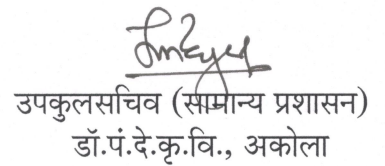 उपकुलसचिव (सामान्य प्रशासन)
डॉ.पं.दे.कृ.वि., अकोला